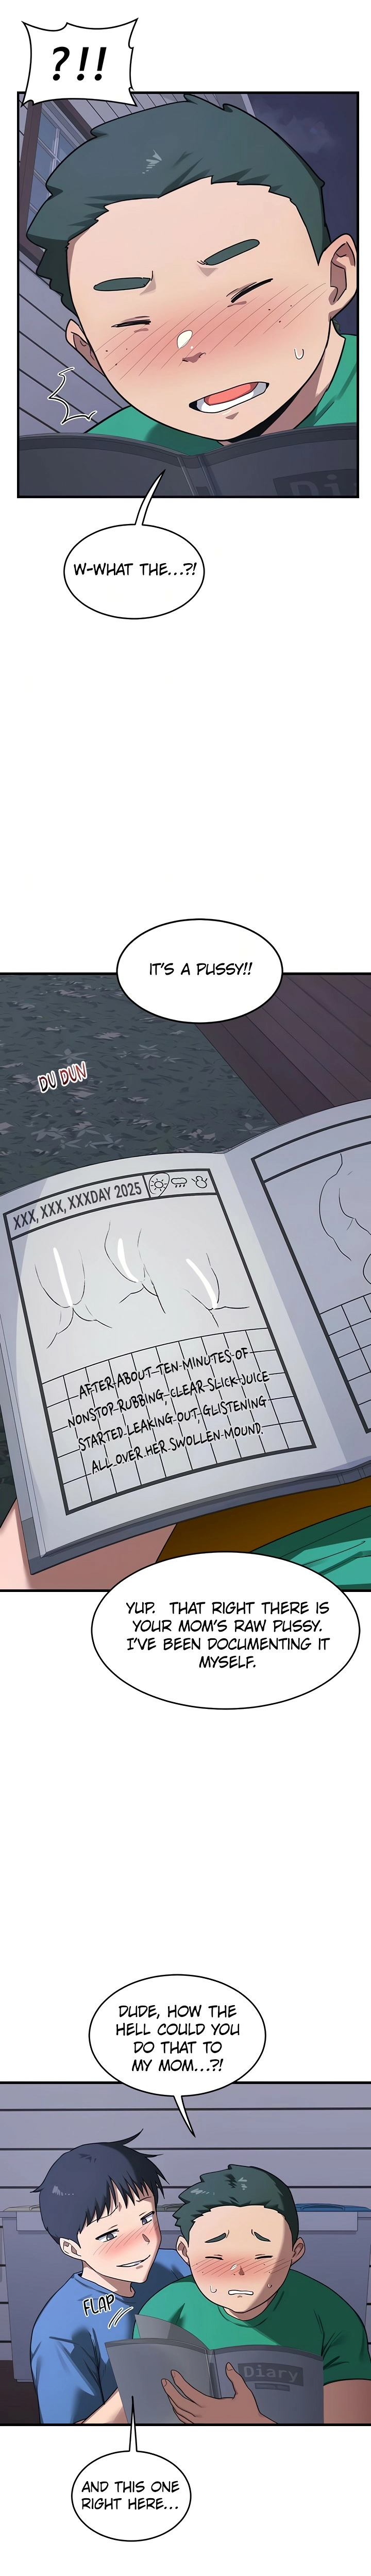 ?!!
Di
W-WHAT THE...?!
IT'S A PUSSY!!
DU DUN
XXX, XXX, XXXDAY 2025
AFTER ABOUT TEN MINUTES OF
NONSTOP RUBBING, CLEAR SLICK JUICE
STARTED LEAKING OUT, GLISTENING
ALL OVER HER SWOLLEN MOUND.
YUP. THAT RIGHT THERE IS
YOUR MOM'S RAW PUSSY.
I'VE BEEN DOCUMENTING IT
MYSELF.
DUDE, HOW THE
HELL COULD YOU
DO THAT TO
MY MOM...?!
FLAP
Diary
AND THIS ONE
RIGHT HERE...